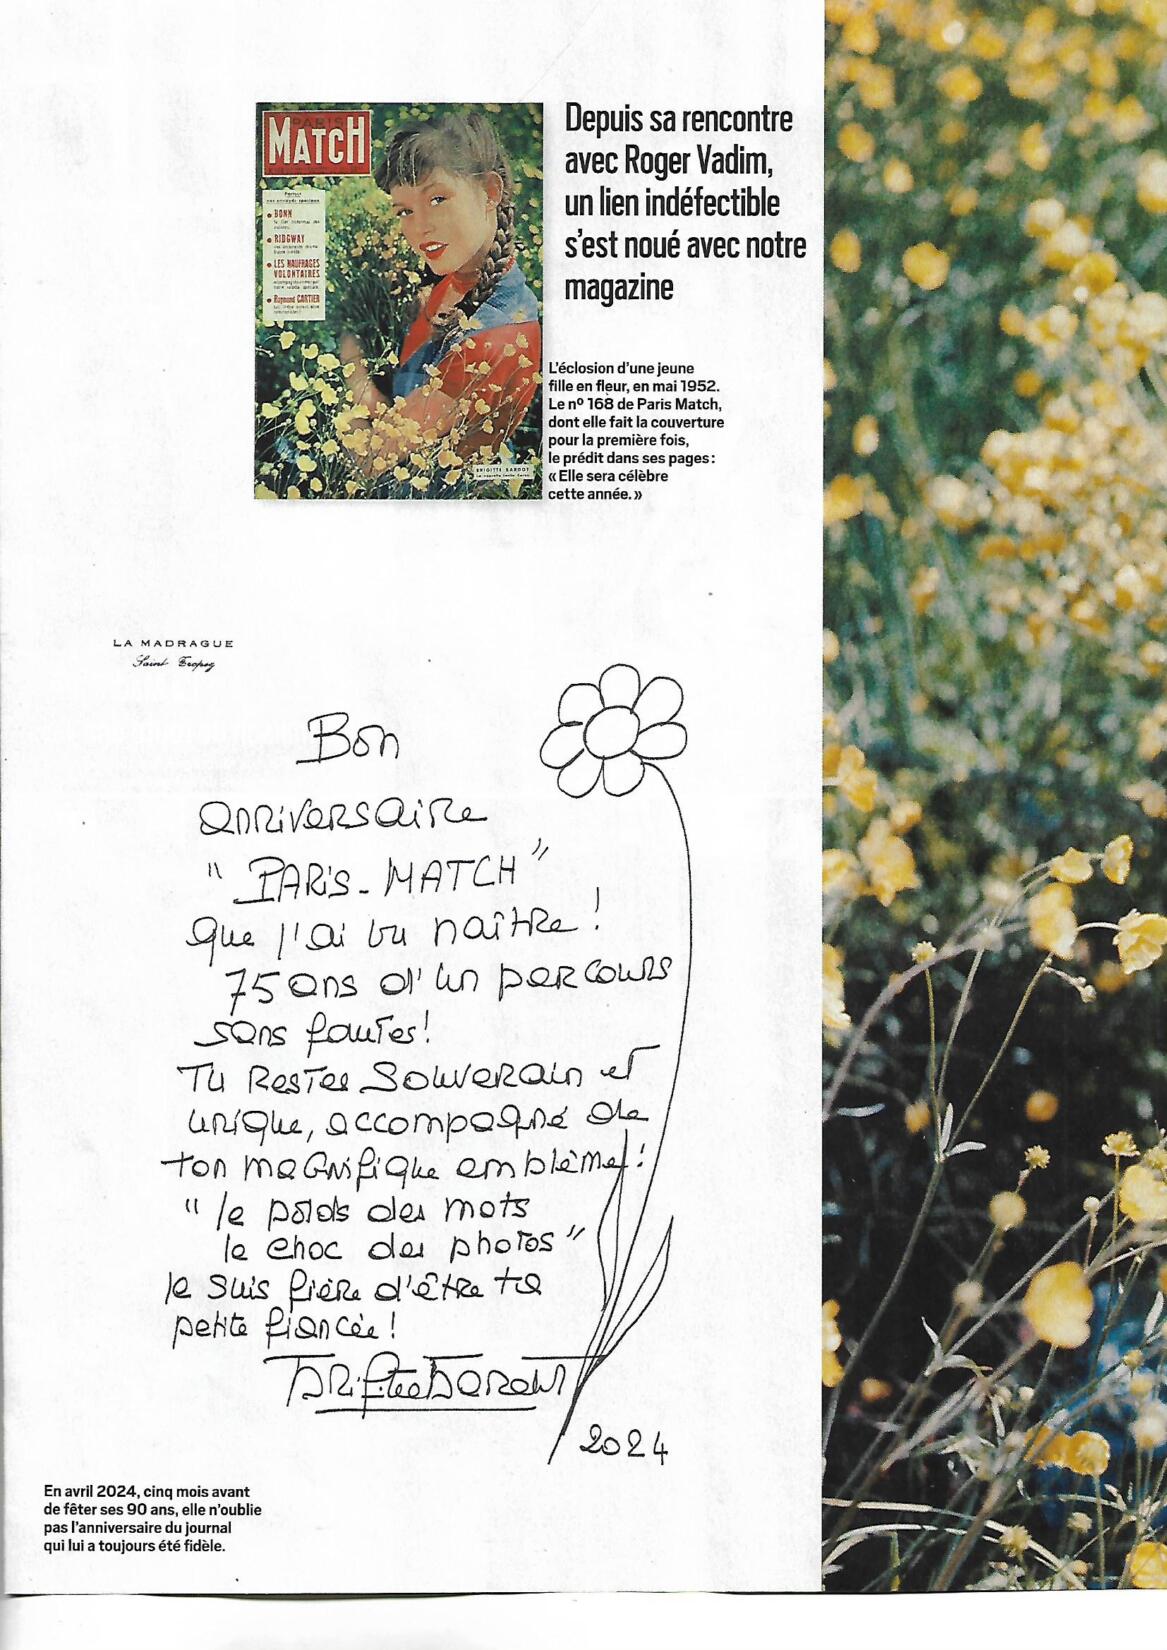 PARIS
MATCH
BONN
RIDGWAY
LES NAUFRAGÉS
VOLONTAIRES
Raymond CARTIER
BRIGITTE BARDOT
Depuis sa rencontre
avec Roger Vadim,
un lien indéfectible
s'est noué avec notre
magazine
L'éclosion d'une jeune
fille en fleur, en mai 1952.
Le nº 168 de Paris Match,
dont elle fait la couverture
pour la première fois,
le prédit dans ses pages :
« Elle sera célèbre
cette année. »
LA MADRAGUE
Saint Tropez
Bon
anniversaire
" PARIS-MATCH "
que j'ai vu naître !
75 ans d'un parcours
sans fautes !
Tu restes souverain et
unique, accompagné de
ton magnifique emblème !
" le poids des mots
le choc des photos "
Je suis fière d'être ta
petite fiancée !
Brigitte Bardot
2024
En avril 2024, cinq mois avant
de fêter ses 90 ans, elle n'oublie
pas l'anniversaire du journal
qui lui a toujours été fidèle.